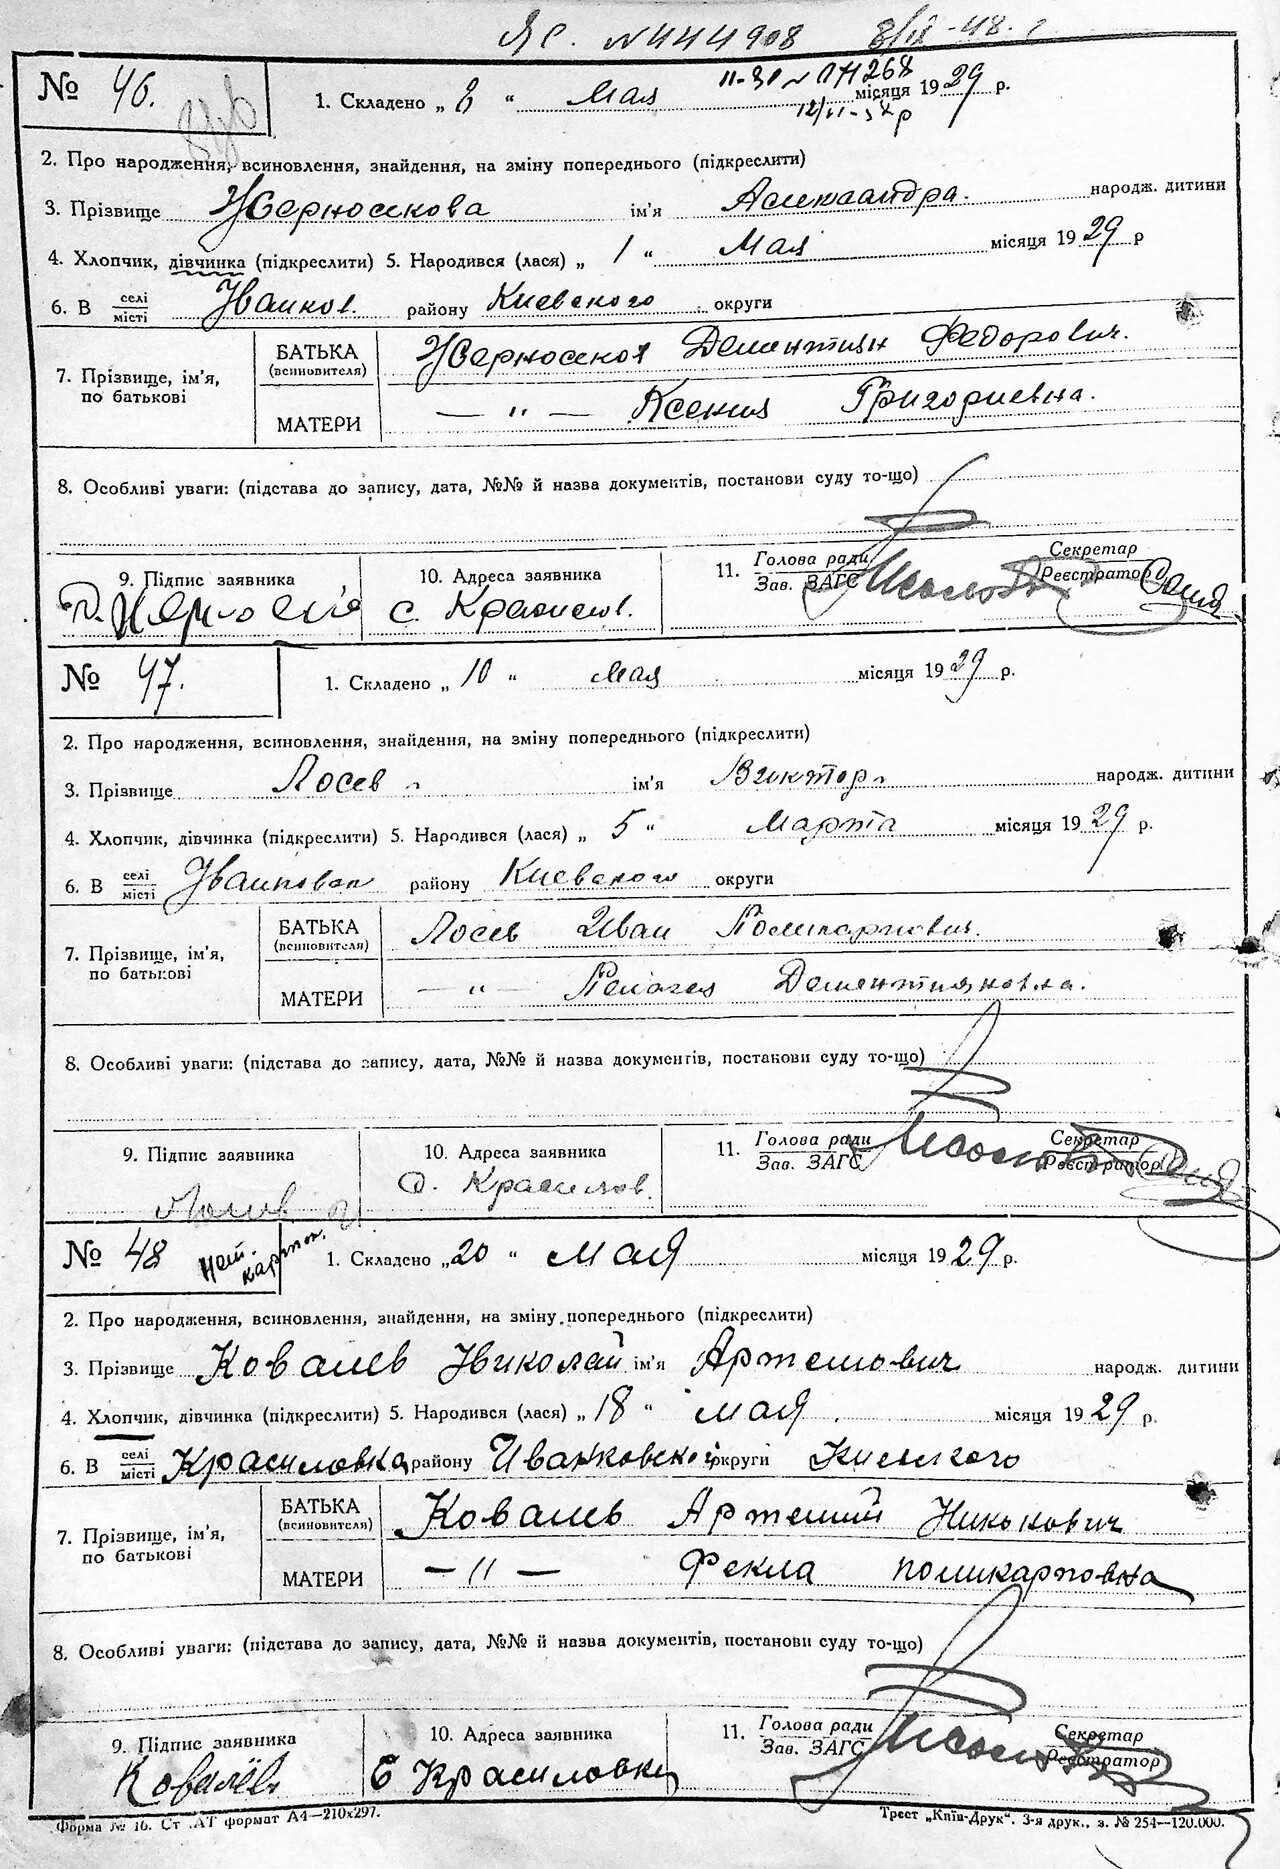 ЯС. №444908 8/IX-48. г
№ 46. 1. Складено „ 8 “ Мая місяця 1929 р.
2. Про народження, всиновлення, знайдення, на зміну попереднього (підкреслити)
3. Прізвище Черносекова ім'я Александра. народж. дитини
4. Хлопчик, дівчинка (підкреслити) 5. Народився (лася) „ 1 “ Мая місяця 1929 р
6. В селі місті Иванков. району Киевского округи
7. Прізвище, ім'я, по батькові
БАТЬКА (всиновителя) Черносеков Дементиян Федорович.
МАТЕРИ — " — Ксения Григориевна.
8. Особливі уваги: (підстава до запису, дата, №№ й назва документів, постанови суду то-що)
9. Підпис заявника 10. Адреса заявника 11. Голова ради Зав. ЗАГС Секретар Реєстратор
с.
№ 47. 1. Складено „ 10 “ мая місяця 1929 р.
2. Про народження, всиновлення, знайдення, на зміну попереднього (підкреслити)
3. Прізвище Лосев ім'я Виктор народж. дитини
4. Хлопчик, дівчинка (підкреслити) 5. Народився (лася) „ 5 “ Марта місяця 1929 р.
6. В селі місті району Киевского округи
7. Прізвище, ім'я, по батькові
БАТЬКА (всиновителя) Лосев Иван Поликарпович.
МАТЕРИ — " — Пелагея Дементияновна.
8. Особливі уваги: (підстава до запису, дата, №№ й назва документів, постанови суду то-що)
9. Підпис заявника 10. Адреса заявника 11. Голова ради Зав. ЗАГС Секретар Реєстратор
Красилов.
№ 48 нет. картон. 1. Складено „ 20 “ мая місяця 1929 р.
2. Про народження, всиновлення, знайдення, на зміну попереднього (підкреслити)
3. Прізвище Ковалев Николай ім'я Артемович народж. дитини
4. Хлопчик, дівчинка (підкреслити) 5. Народився (лася) „ 18 “ мая місяця 1929 р.
6. В селі місті Красиловка району Иванковской округи
7. Прізвище, ім'я, по батькові
БАТЬКА (всиновителя) Ковалев Артемий Никонович
МАТЕРИ — " — Фекла поликарповна
8. Особливі уваги: (підстава до запису, дата, №№ й назва документів, постанови суду то-що)
9. Підпис заявника 10. Адреса заявника 11. Голова ради Зав. ЗАГС Секретар Реєстратор
Ковалёв С Красиловки
Форма № 16. Ст .АТ формат А4—210х297. Трест „Київ-Друк“. 3-я друк., з. № 254—120.000.